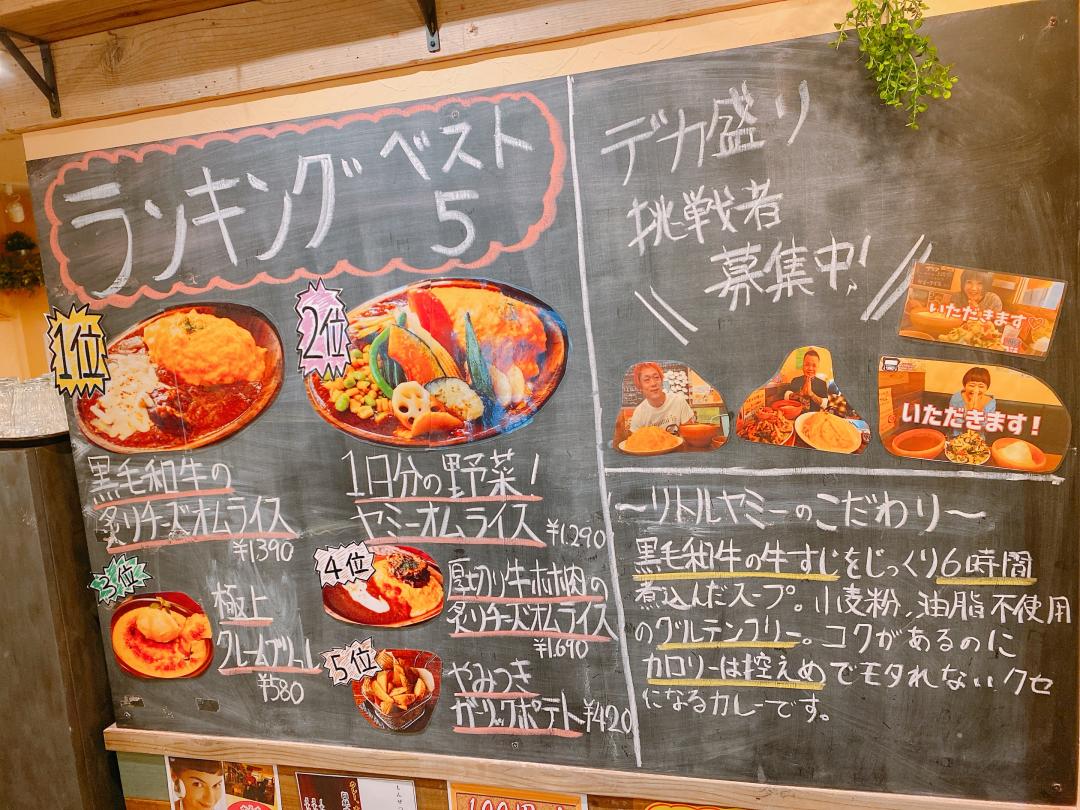 ランキング ベスト
5
1位
黒毛和牛の
炙りチーズオムライス
¥1390
2位
1日分の野菜!
ヤミーオムライス ¥1.290
3位
極上
クレームブリュレ
¥580
4位
厚切り牛ホホ肉の
炙りチーズオムライス
¥1.690
5位
やみつき
ガーリックポテト ¥420
デカ盛り
挑戦者
募集中!
いただきます
いただきます!
～リトルヤミーのこだわり～
黒毛和牛の牛すじをじっくり6時間
煮込んだスープ。小麦粉、油脂不使用
のグルテンフリー。コクがあるのに
カロリーは控えめでモタれないクセ
になるカレーです。